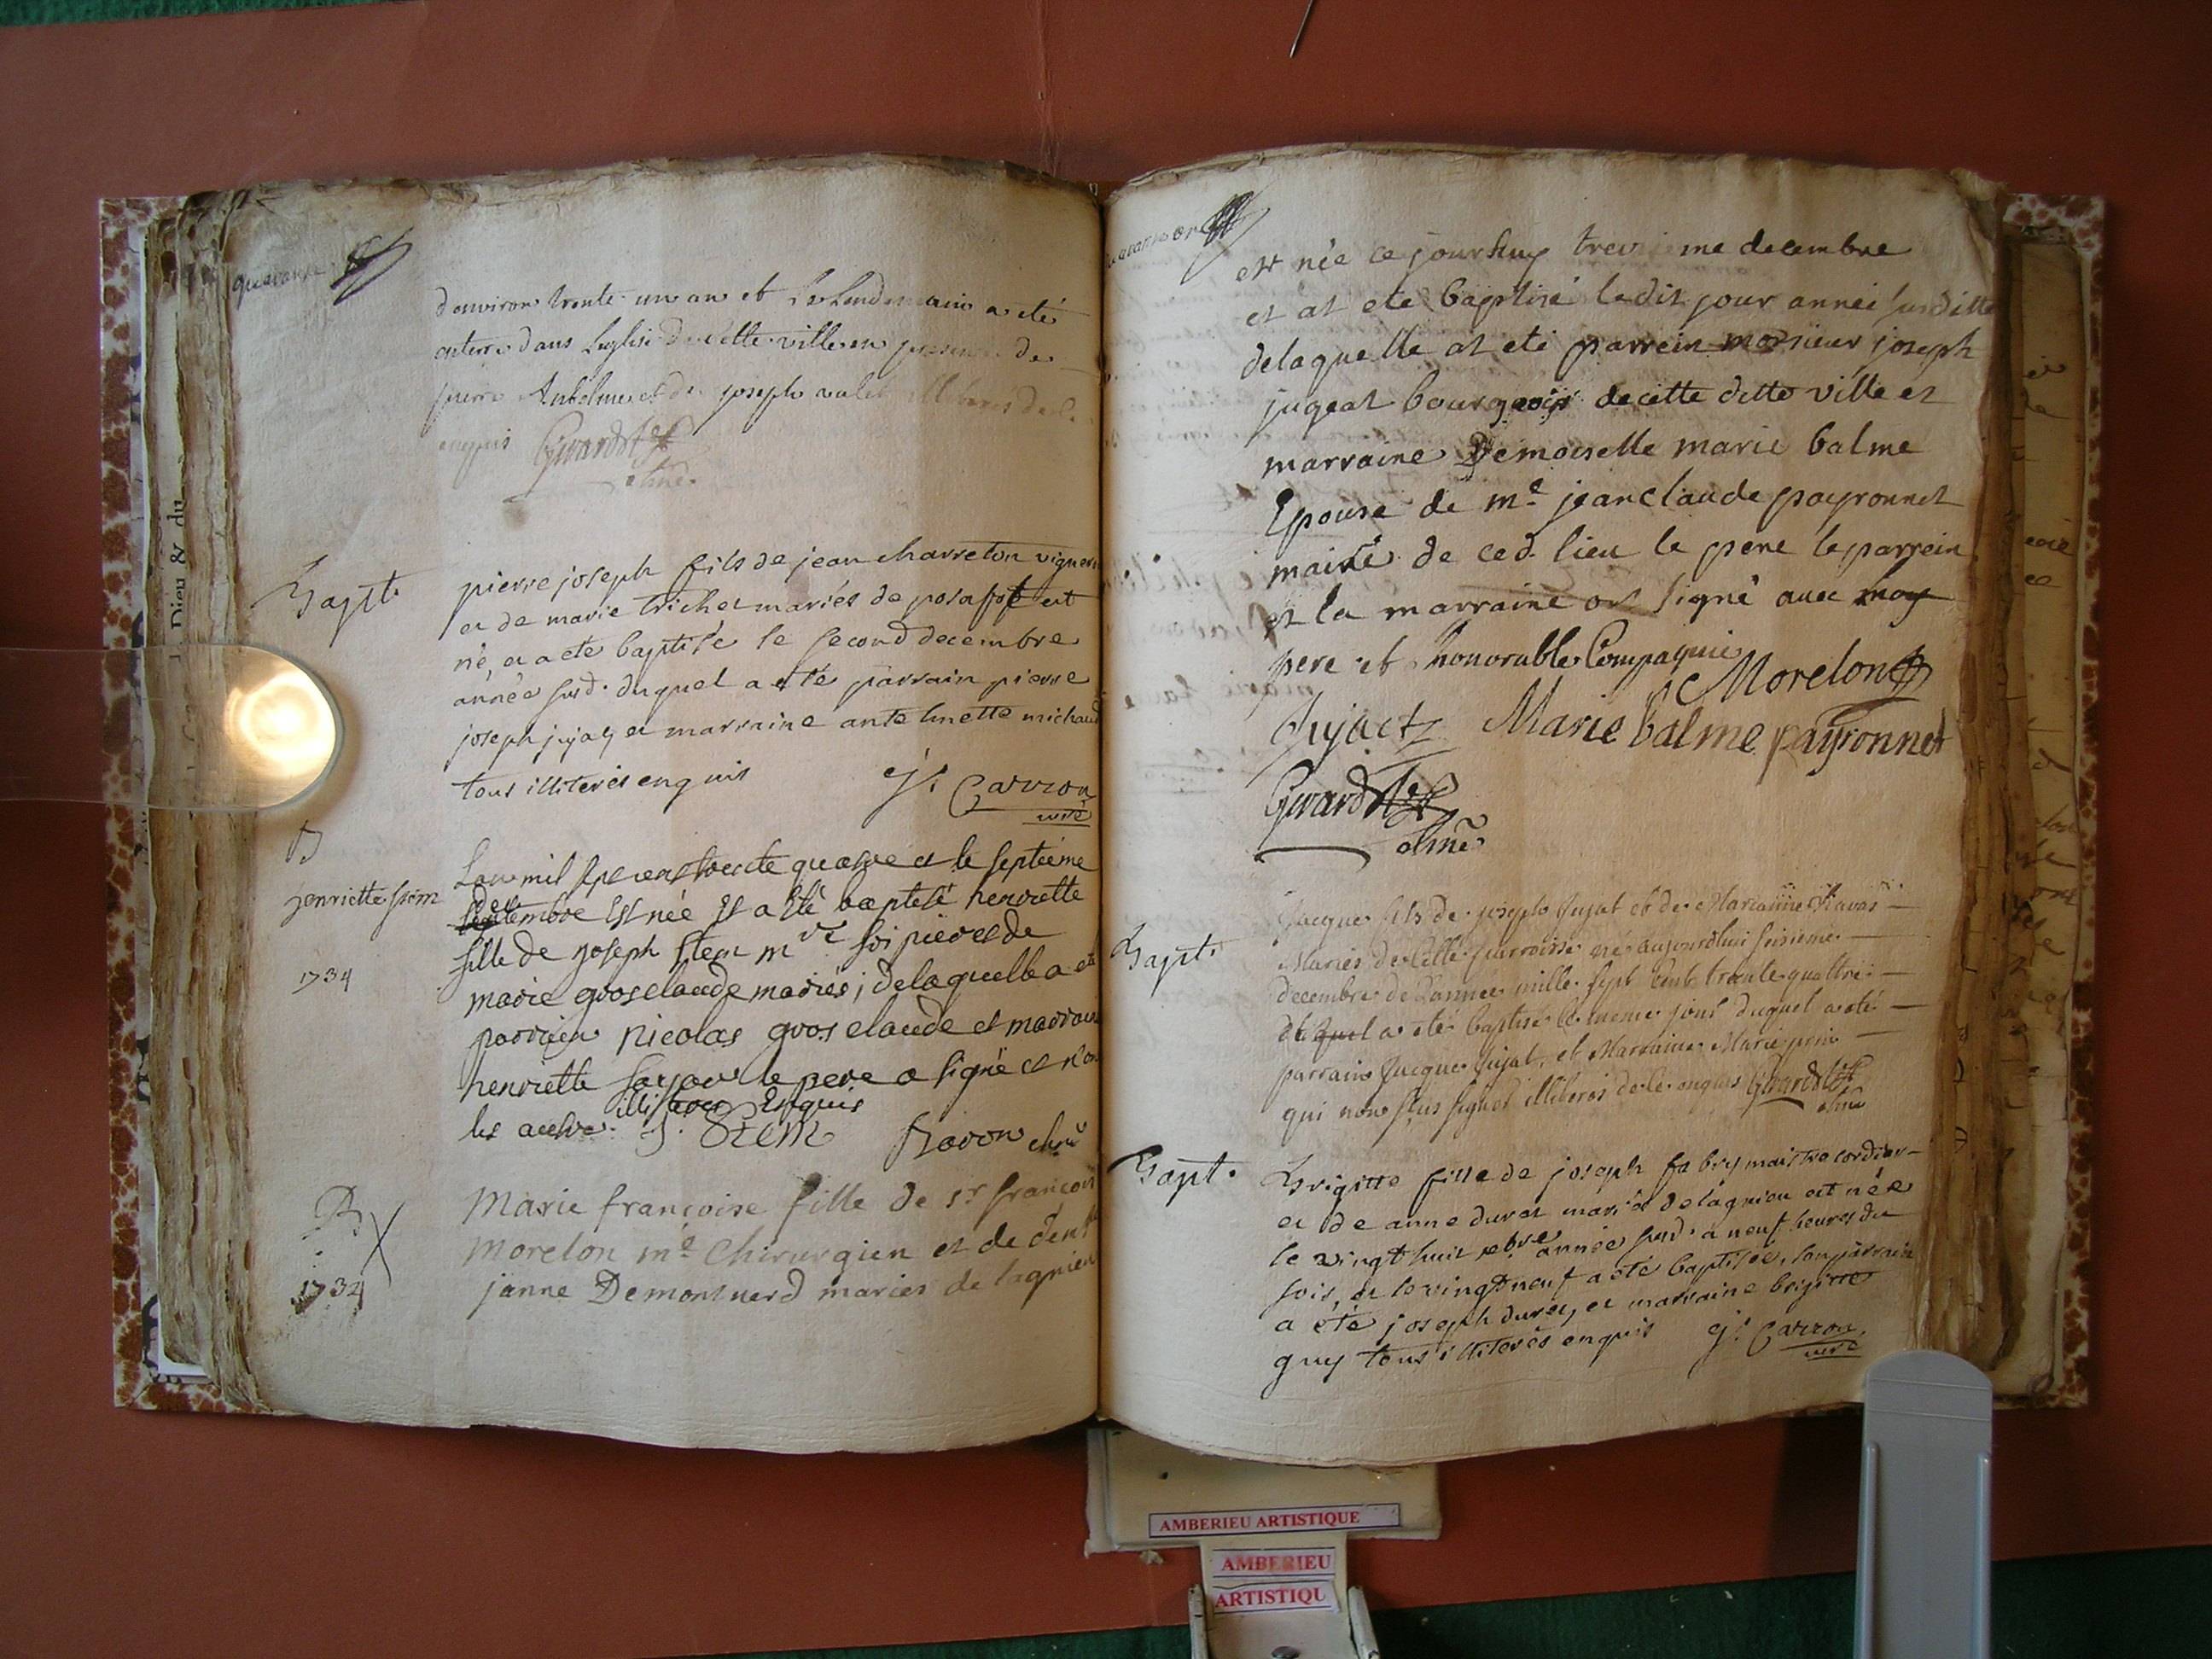 quarante
d'environ trente un an et Le Lendemain a eté
enterré dans Leglise de cette ville en presence de
pierre Antelme et de joseph valet illiteres de le
enquis Girardet
Bapt.
pierre joseph fils de jean charreton vigneron
et de marie trichet mariés de posafot est
né, et a eté baptisé le second decembre
année susd. duquel a eté parrain pierre
joseph jujat et marraine anthelmette michaud
tous illiterés enquis Carron
curé
B
henriette stem
1734
Lan mil sept cens trente quatre et le septiéme
decembre Est née Et a Eté baptisé henriette
fille de joseph stem mre et de
marie grosclaude mariés; de laquelle a eté
parrain nicolas grosclaude et marraine
henriette le pere a signé et non
les autres illiterés Enquis
J. Stem Baron
B
1734
Marie françoise fille de sr françois
morelon me Chirurgien et de
janne Demontuerd mariés de lagnieu
est née ce jourhuy trezieme decembre
et at eté baptisé ledit jour année susditte
delaquelle at eté parrein monsieur joseph
jugeat bourgeois de cette ditte ville et
marraine Demoiselle marie balme
Epouse de me jean claude payronnet
maire de ced. lieu le pere le parrein
et la marraine ont signé avec moy
pere et honorable Compagnie
Morelon
Jujact Marie balme payronnet
Girardet
Bapt.
Jacque fils de joseph Jujat et de Marianne Ravas
Mariés de Cette parroisse né aujourdhui seisieme
decembre de L'annee mille sept Cent trente quattre
duquel a eté baptisé le meme jour duquel a eté
parrain Jacque Jujat, et Marraine Marie prin
qui non plus signés illiteres de le enquis Girardet
Bapt.
Brigitte fille de joseph fabry maistre cordier
et de anne durat mariés de lagnieu est née
le vingt huit xbre année susd. a neuf heures du
soir, et le vingt neuf a eté baptisée, son parrain
a eté joseph durat, et marraine brigitte
guy tous illiterés enquis Carron
curé
AMBERIEU ARTISTIQUE
AMBERIEU
ARTISTIQU